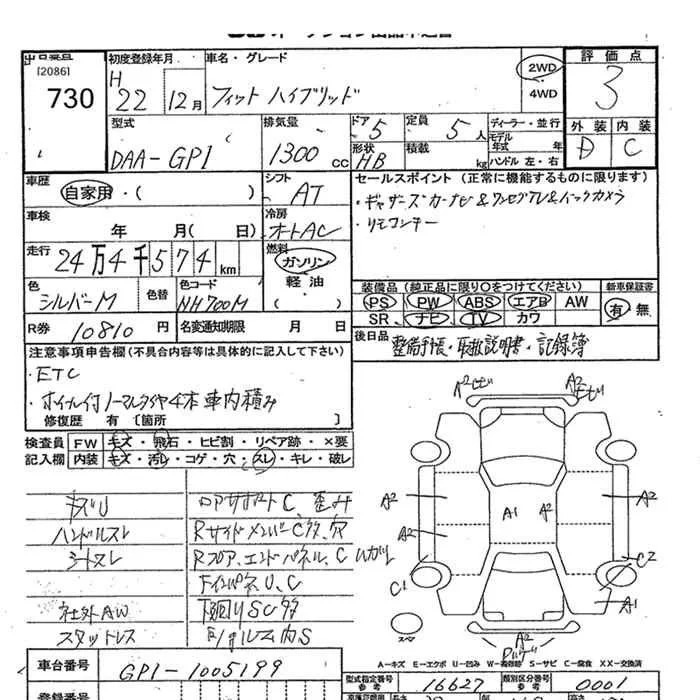 [2086]
730
初度登録年月
H 22 12月
車名・グレード
フィット ハイブリッド
2WD
4WD
評価点
3
外装 内装
D C
型式
DAA-GP1
排気量
1300 cc
ドア 5
定員 5人
形状 HB
積載 kg
ディーラー・並行
モデル年式 年
ハンドル 左・右
車歴
自家用・( )
シフト
AT
セールスポイント (正常に機能するものに限ります)
・ギャザーズカーナビ&ワンセグTV&バックカメラ
・リモコンキー
車検
年 月( 日)
冷房
オートAC
走行
24万4千574km
燃料
ガソリン
軽油
( )
色
シルバーM
色替
色コード
NH700M
装備品 (純正品に限り○をつけてください)
PS PW ABS エアB AW
SR ナビ TV カワ
新車保証書
有・無
R券 10810円
名変通知期限 月 日
後日品
整備手帳・取扱説明書・記録簿
注意事項申告欄(不具合内容等は具体的に記入して下さい)
・ETC
・ホイール付ノーマルタイヤ4本車内積み
修復歴 有 〔箇所 〕
検査員 FW キズ・飛石・ヒビ割・リペア跡・×要
記入欄 内装 キズ・汚レ・コゲ・穴・スレ・キレ・破レ
キズU
ハンドルスレ
シートスレ
社外AW
スタッドレス
コアサポートC、歪み
RサイドメンバーC多、穴
Rフロア、エンドパネル、C
FインパネU、C
下回りSC多
A2
A2
A2
A2
A1
A2
A2
C1
C2
A1
A2
スペア
A-キズ E-エクボ U-凹み W-補修跡 S-サビ C-腐食 XX-交換済
車台番号
GP1-1005199
登録番号
型式指定番号
参考
16627
類別区分番号
参考
0001